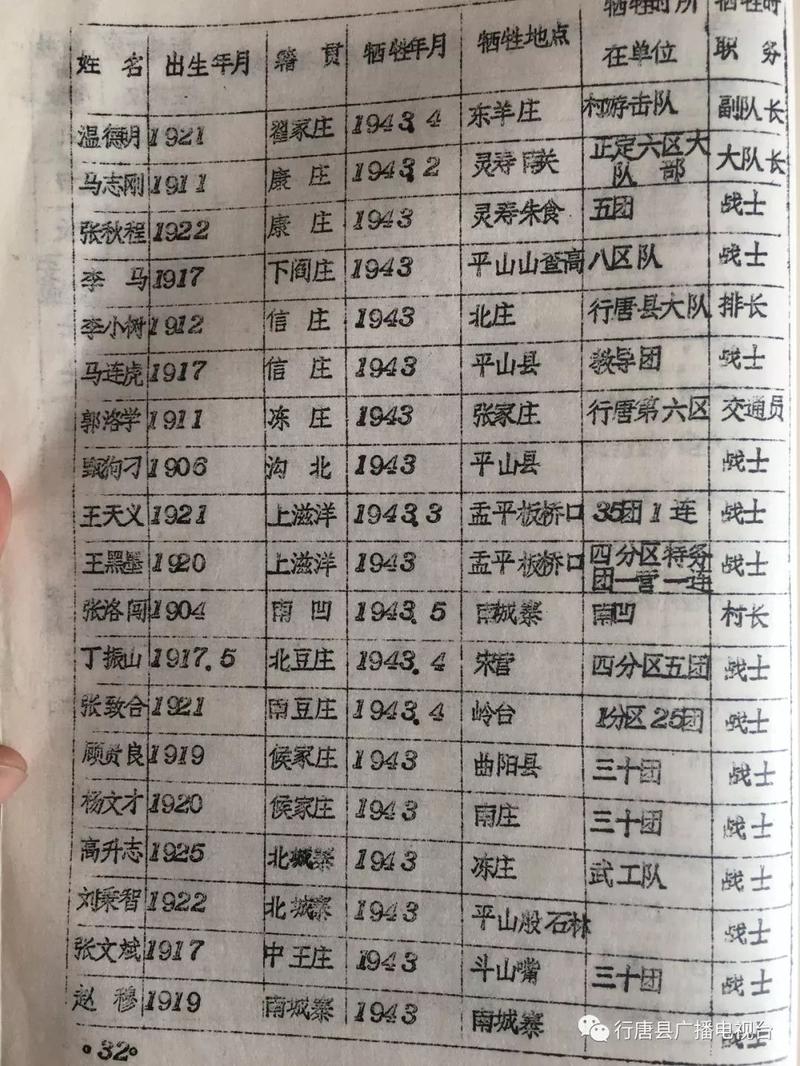 姓 名 出生年月 籍 贯 牺牲年月 牺牲地点 牺牲时所在单位 牺牲时职 务
温德明 1921 翟家庄 1943.4 东羊庄 村游击队 副队长
马志刚 1911 康 庄 1943.2 灵寿南关 正定六区大队 部 大队长
张秋程 1922 康 庄 1943 灵寿朱食 五团 战士
李 马 1917 下阎庄 1943 平山山查高 八区队 战士
李小树 1912 信 庄 1943 北庄 行唐县大队 排长
马连虎 1917 信 庄 1943 平山县 教导团 战士
郭洛学 1911 冻 庄 1943 张家庄 行唐第六区 交通员
甄狗刁 1906 沟 北 1943 平山县 战士
王天义 1921 上滋洋 1943.3 孟平板桥口 35团1连 战士
王黑墨 1920 上滋洋 1943 孟平板桥口 四分区特务团一营一连 战士
张洛闯 1904 南 凹 1943.5 南城寨 南凹 村长
丁振山 1917.5 北豆庄 1943.4 宋营 四分区五团 战士
张致合 1921 南豆庄 1943.4 岭台 1分区25团 战士
顾贵良 1919 侯家庄 1943 曲阳县 三十团 战士
杨文才 1920 侯家庄 1943 南庄 三十团 战士
高升志 1925 北城寨 1943 冻庄 武工队 战士
刘乘智 1922 北城寨 1943 平山般石林 战士
张文斌 1917 中王庄 1943 斗山嘴 三十团 战士
赵 穆 1919 南城寨 1943 南城寨 战士
·32·
行唐县广播电视台